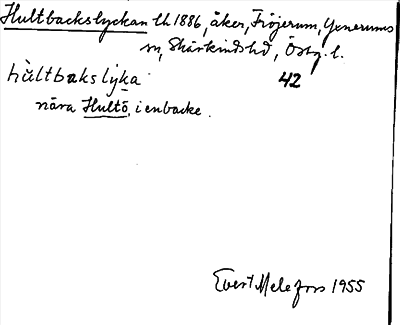 Hultbackslyckan lh 1886, åker, Fröjerum, Yxnerums
sn, Skärkinds hd, Östg. l.
hùltbakslỳka 42
nära Hultö, i en backe.
Evert Melefors 1955